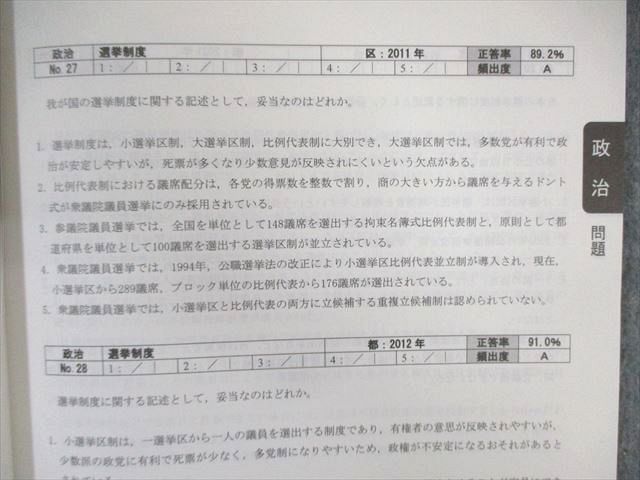 政治 選挙制度 区：2011年 正答率 89.2%
No 27 1：／ 2：／ 3：／ 4：／ 5：／ 頻出度 A
我が国の選挙制度に関する記述として，妥当なのはどれか。
1. 選挙制度は，小選挙区制，大選挙区制，比例代表制に大別でき，大選挙区制では，多数党が有利で政
治が安定しやすいが，死票が多くなり少数意見が反映されにくいという欠点がある。
2. 比例代表制における議席配分は，各党の得票数を整数で割り，商の大きい方から議席を与えるドント
式が衆議院議員選挙にのみ採用されている。
3. 参議院議員選挙では，全国を単位として148議席を選出する拘束名簿式比例代表制と，原則として都
道府県を単位として100議席を選出する選挙区制が並立されている。
4. 衆議院議員選挙では，1994年，公職選挙法の改正により小選挙区比例代表並立制が導入され，現在，
小選挙区から289議席，ブロック単位の比例代表から176議席が選出されている。
5. 衆議院議員選挙では，小選挙区と比例代表の両方に立候補する重複立候補制は認められていない。
政治
問題
政治 選挙制度 都：2012年 正答率 91.0%
No.28 1：／ 2：／ 3：／ 4：／ 5：／ 頻出度 A
選挙制度に関する記述として，妥当なのはどれか。
1. 小選挙区制は，一選挙区から一人の議員を選出する制度であり，有権者の意思が反映されやすいが，
少数派の政党に有利で死票が少なく，多党制になりやすいため，政権が不安定になるおそれがあると
されている。